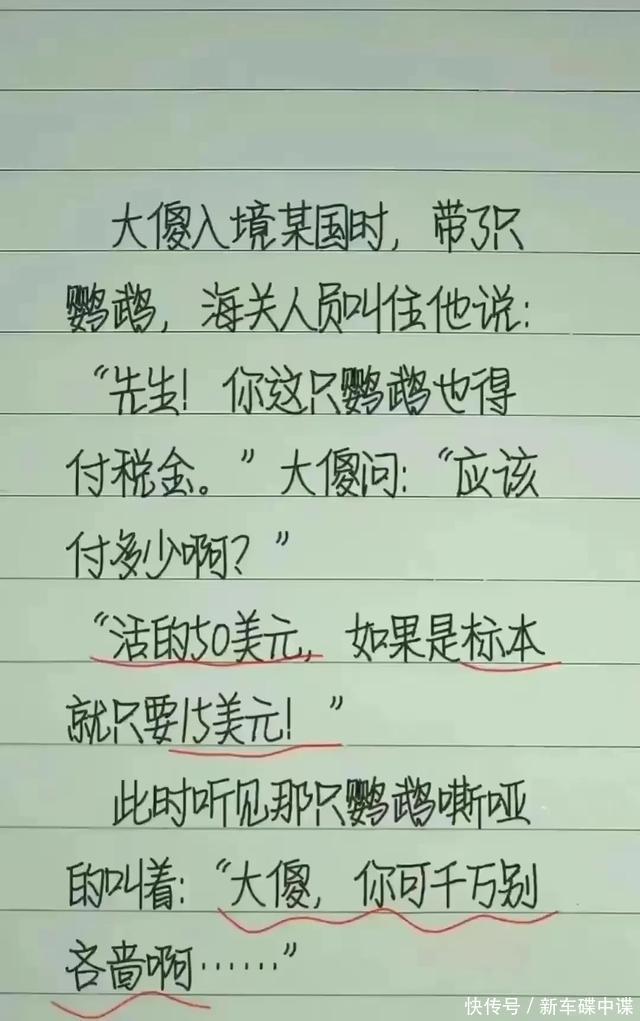 大傻入境某国时，带了只
鹦鹉，海关人员叫住他说：
“先生！你这只鹦鹉也得
付税金。”大傻问：“应该
付多少啊？”
“活的50美元，如果是标本
就只要15美元！”
此时听见那只鹦鹉嘶哑
的叫着：“大傻，你可千万别
吝啬啊……”
快传号／新车碟中谍